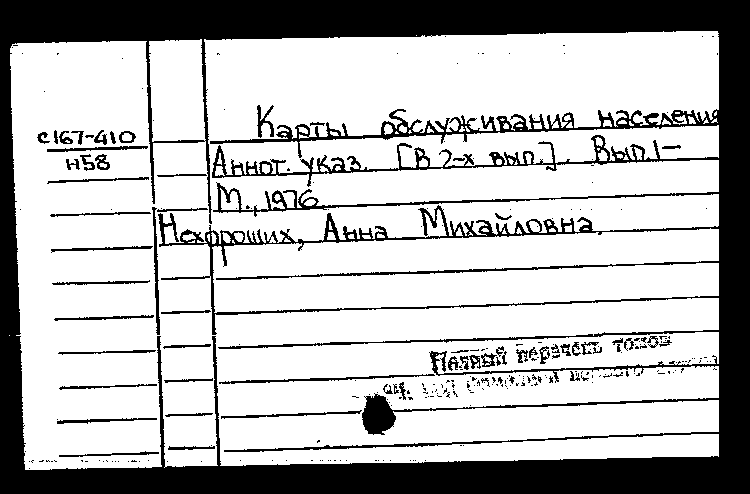 с167-410
Н58
Карты обслуживания населения
Аннот. указ. [В 2-х вып.]. Вып.1-
М., 1976
Нехороших, Анна Михайловна.
Полный перечень томов
см. первого